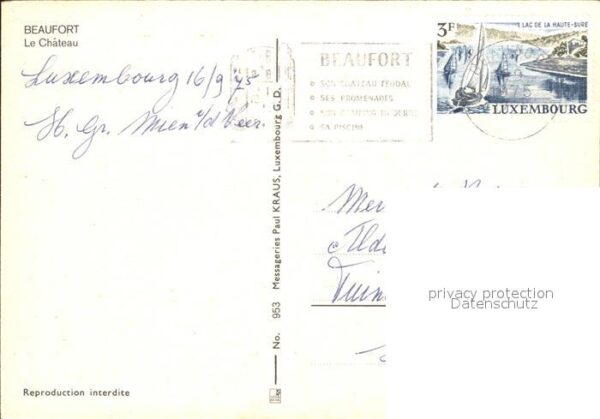 BEAUFORT
Le Château
Luxembourg 16/9 '75
H. Gr. Mien v/d Veer.
BEAUFORT
SON CHATEAU FEODAL
SES PROMENADES
SA PISCINE
3F
LAC DE LA HAUTE-SURE
LUXEMBOURG
No. 953 Messageries Paul KRAUS, Luxembourg G.D.
privacy protection
Datenschutz
Reproduction interdite